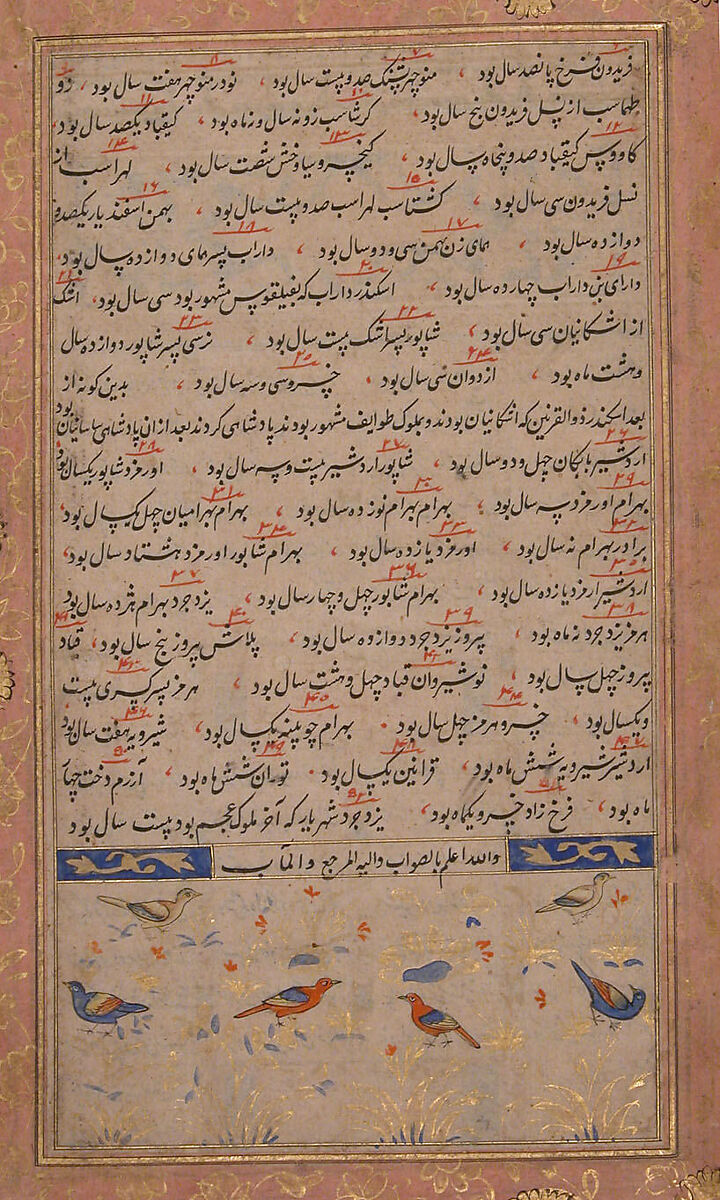 فریدون فرخ پانصد سال بود ، منوچهر پشنگ صد و بیست سال بود ، نودر منوچهر هفت سال بود ، زو
طهماسب از نسل فریدون پنج سال بود ، کرشاسب زو نه سال و نه ماه بود ، کیقباد یکصد سال بود ،
کاووس کیقباد صد و پنجاه سال بود ، کیخسرو سیاوخش شصت سال بود ، لهراسب از
نسل فریدون سی سال بود ، کشتاسب لهراسب صد و بیست سال بود ، بهمن اسفندیار یکصد و
دوازده سال بود ، همای زن بهمن سی و دو سال بود ، داراب پسر همای دوازده سال بود ،
دارای بن داراب چهارده سال بود ، اسکندر داراب که بفیلقوس مشهور بود سی سال بود ، اشک
از اشکانیان سی سال بود ، شاپور پسر اشک بیست سال بود ، نرسی پسر شاپور دوازده سال
و هشت ماه بود ، اردوان سی سال بود ، خسرو سی و سه سال بود ، بدین کونه از
بعد اسکندر ذوالقرنین که اشکانیان بودند و بملوک طوایف مشهور بودند پادشاهی کردند بعد از ان پادشاهی ساسانیان بود
اردشیر بابکان چهل و دو سال بود ، شاپور اردشیر بیست و سه سال بود ، اورمزد شاپور یکسال بود
بهرام اورمزد سه سال بود ، بهرام بهرام نوزده سال بود ، بهرام بهرامیان چهل یکسال بود ،
برادر بهرام نه سال بود ، اورمزد یازده سال بود ، بهرام شاپور اورمزد هشتاد سال بود ،
اردشیر ارمزد یازده سال بود ، بهرام شاپور چهل و چهار سال بود ، یزدجرد بهرام هژده سال بود
هرمز یزدجرد نه ماه بود ، پیروز یزدجرد دوازده سال بود ، پلاش پیروز پنج سال بود ، قباد
پیروز چهل سال بود ، نوشیروان قباد چهل و هشت سال بود ، هرمز پسر کسری بیست
و یکسال بود ، خسرو هرمز چهل سال بود . بهرام چوبینه یکسال بود ، شیرویه هفت سال بود
اردشیر شیرویه شش ماه بود ، قرانین یکسال بود . توران شش ماه بود ، آزرم دخت چهار
ماه بود ، فرخ زاد خسرو یکماه بود ، یزدجرد شهریار که آخر ملوک عجم بود بیست سال بود
والله اعلم بالصواب والیه المرجع والمآب